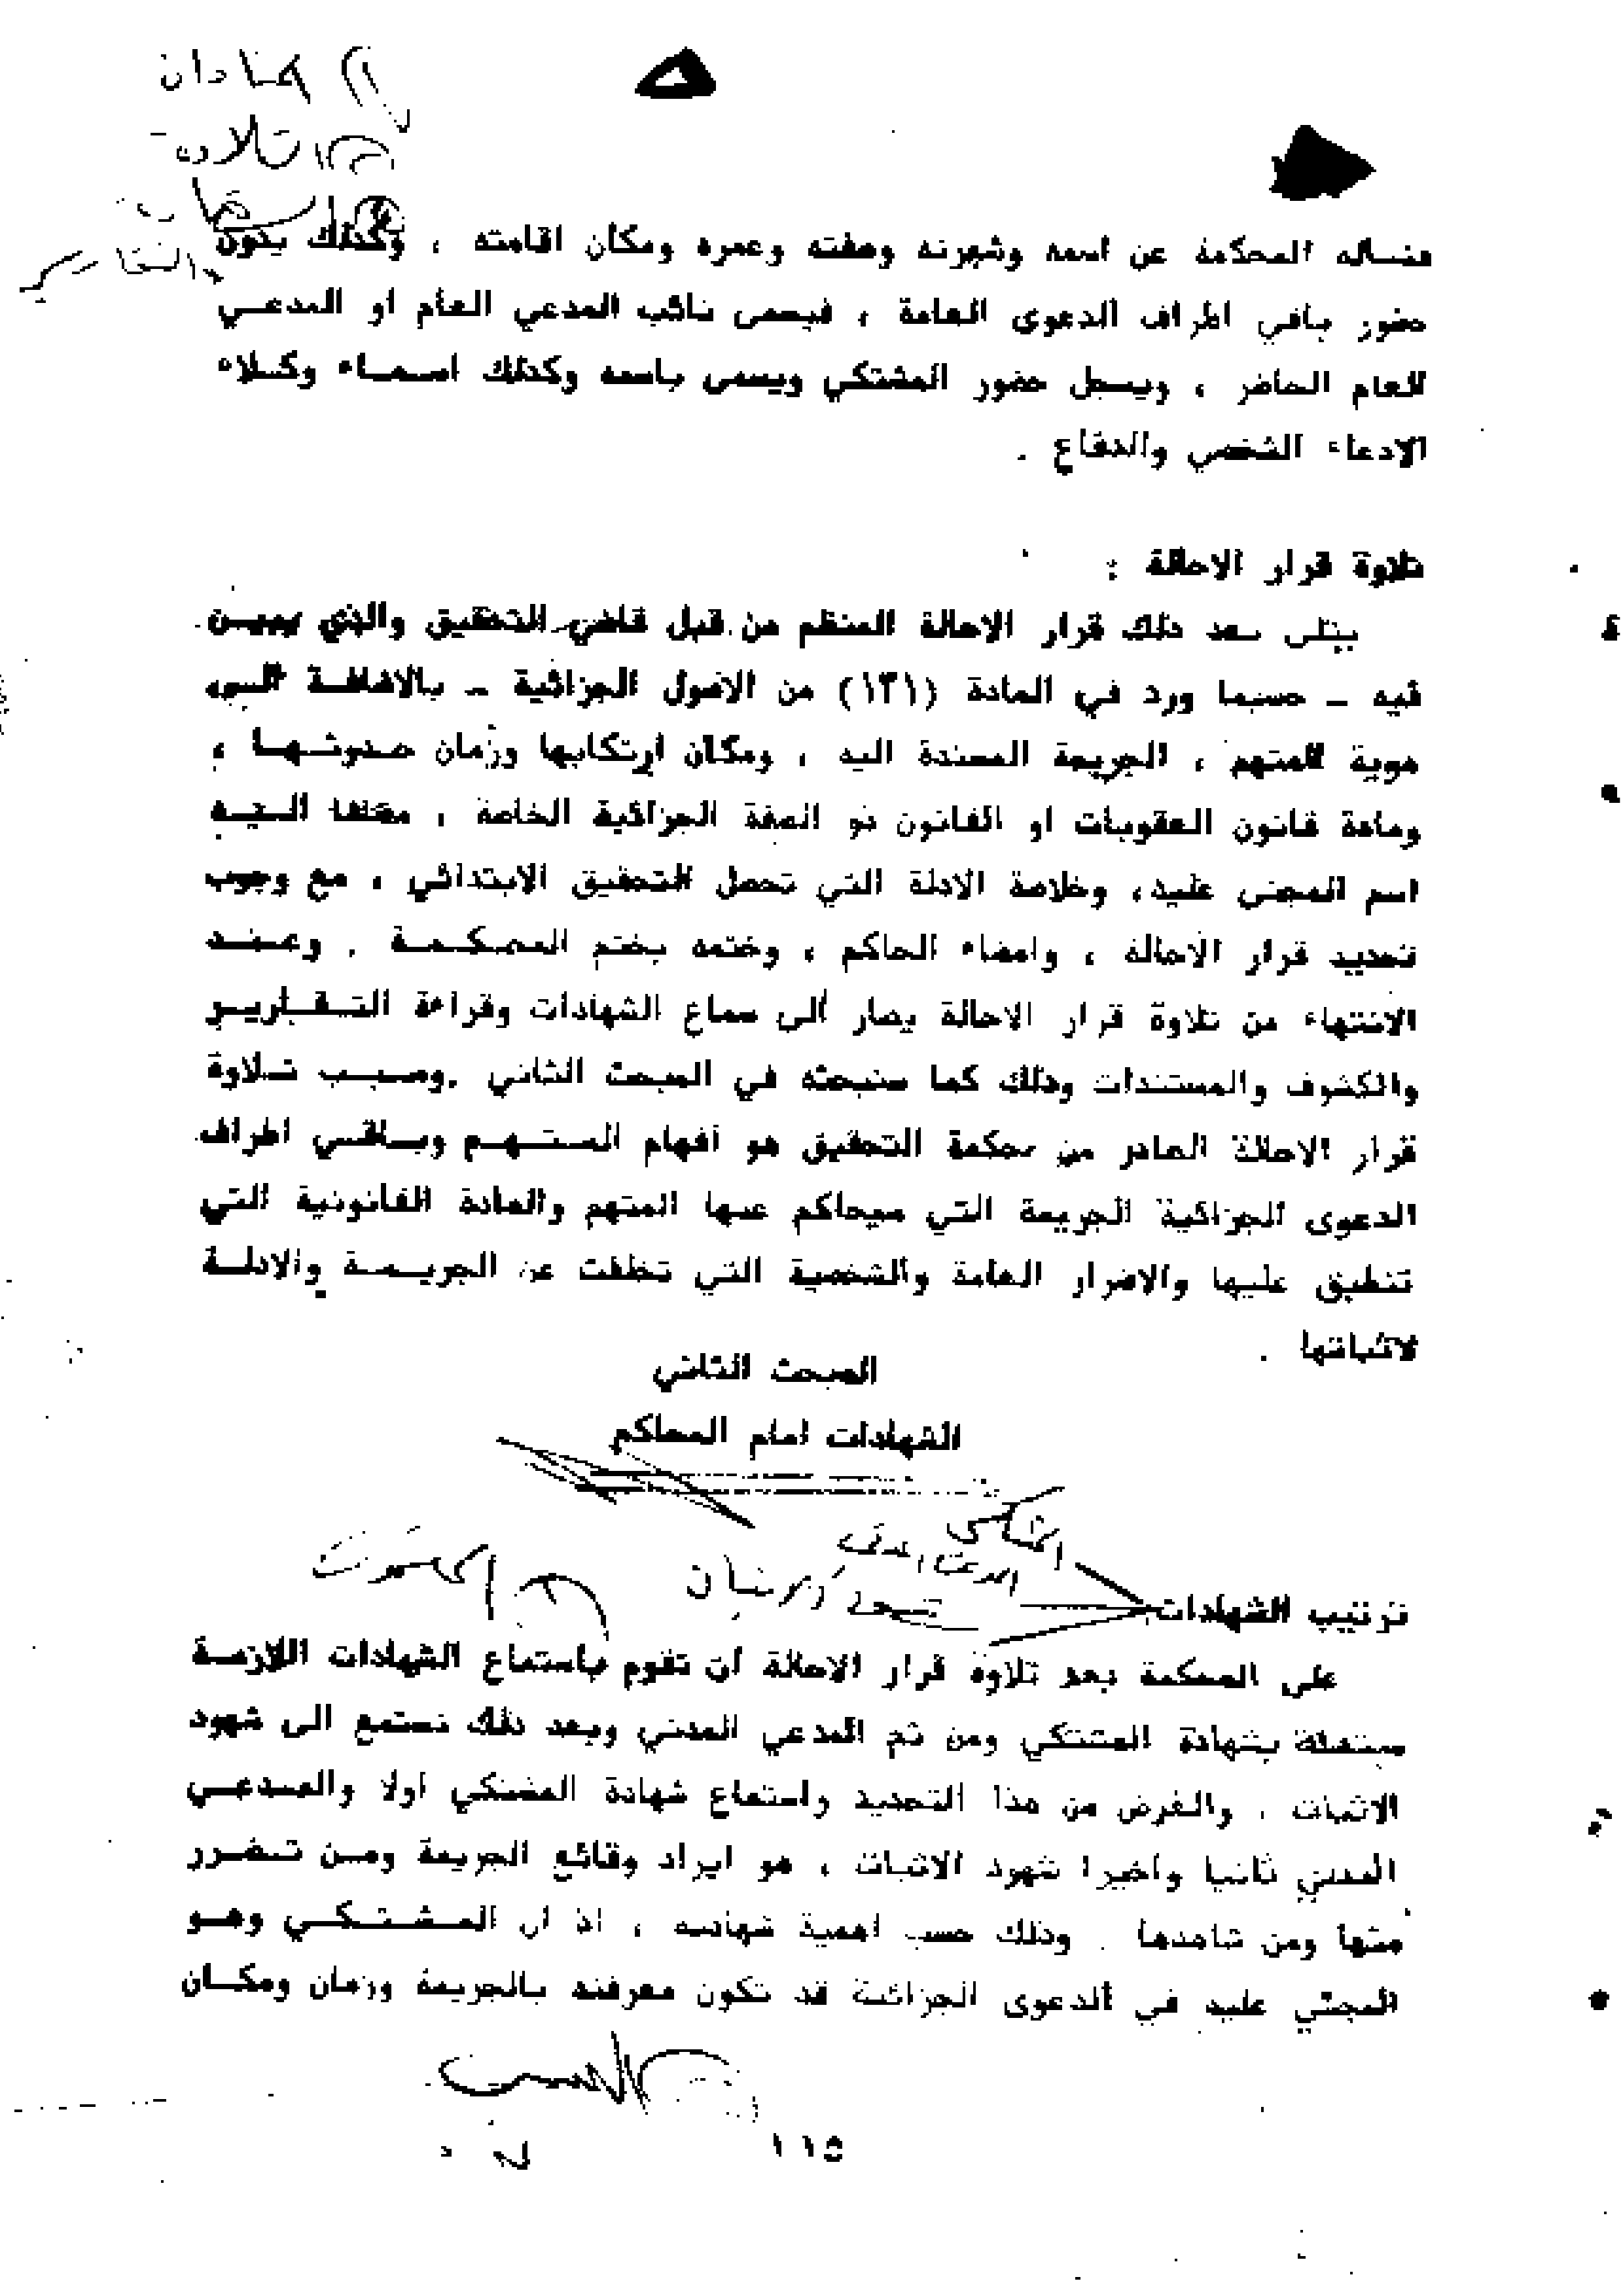 فتساله المحكمة عن اسمه وشهرته وصفته وعمره ومكان اقامته ، وكذلك يدون
حضور باقي اطراف الدعوى العامة ، فيسمى نائب المدعي العام او المدعـي
العام الحاضر ، ويسجل حضور المشتكي ويسمى باسمه وكذلك اسـمـاء وكـلاء
الادعاء الشخصي والدفاع .
تلاوة قرار الاحالة :
يتلى بعد ذلك قرار الاحالة المنظم من قبل قاضي التحقيق والذي يبيـن
فيه - حسبما ورد في المادة (١٣١) من الاصول الجزائية - بالاضافـة الـى
هوية المتهم ، الجريمة المسندة اليه ، ومكان ارتكابها وزمان حـدوثـهـا ،
ومادة قانون العقوبات او القانون ذو الصفة الجزائية الخاصة ، مضافا الـيـه
اسم المجنى عليه، وخلاصة الادلة التي تحمل التحقيق الابتدائي ، مع وجوب
تحديد قرار الاحالة ، وامضاء الحاكم ، وختمه بختم المـحـكـمـة . وعـنـد
الانتهاء من تلاوة قرار الاحالة يصار الى سماع الشهادات وقراءة التـقـاريـر
والكشوف والمستندات وذلك كما سنبحثه في المبحث الثاني .وسـبـب تـلاوة
قرار الاحالة الصادر من محكمة التحقيق هو افهام المـتـهـم وبـاقـي اطراف
الدعوى الجزائية الجريمة التي سيحاكم عنها المتهم والمادة القانونية التي
تنطبق عليها والاضرار العامة والشخصية التي تخلفت عن الجريـمـة والادلـة
لاثباتها .
المبحث الثاني
الشهادات امام المحاكم
المشتكي
ترتيب الشهادات
على المحكمة بعد تلاوة قرار الاحالة ان تقوم باستماع الشهادات اللازمـة
مبتدئة بشهادة المشتكي ومن ثم المدعي المدني وبعد ذلك تستمع الى شهود
الاثبات ، والغرض من هذا التحديد واستماع شهادة المشتكي اولا والمـدعـي
المدني ثانيا واخيرا شهود الاثبات ، هو ايراد وقائع الجريمة ومـن تـضـرر
منها ومن شاهدها . وذلك حسب اهمية شهادته ، اذ ان المـشـتـكـي وهـو
المجني عليه في الدعوى الجزائية قد تكون معرفته بالجريمة وزمان ومكـان
١١٥